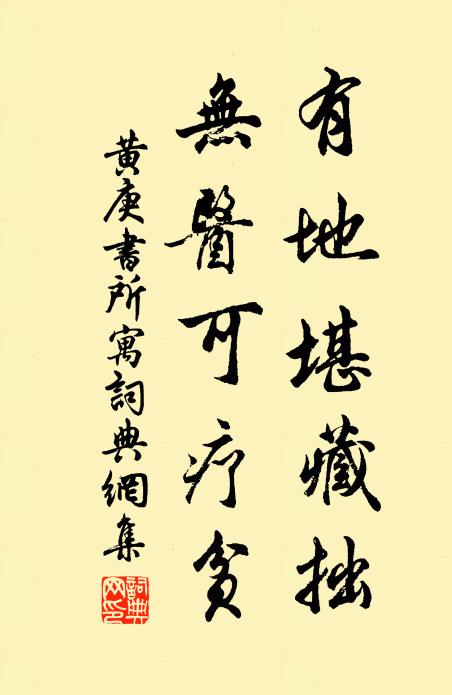 有地堪藏拙
無醫可疗貧
黃庚書所寓詞典網集